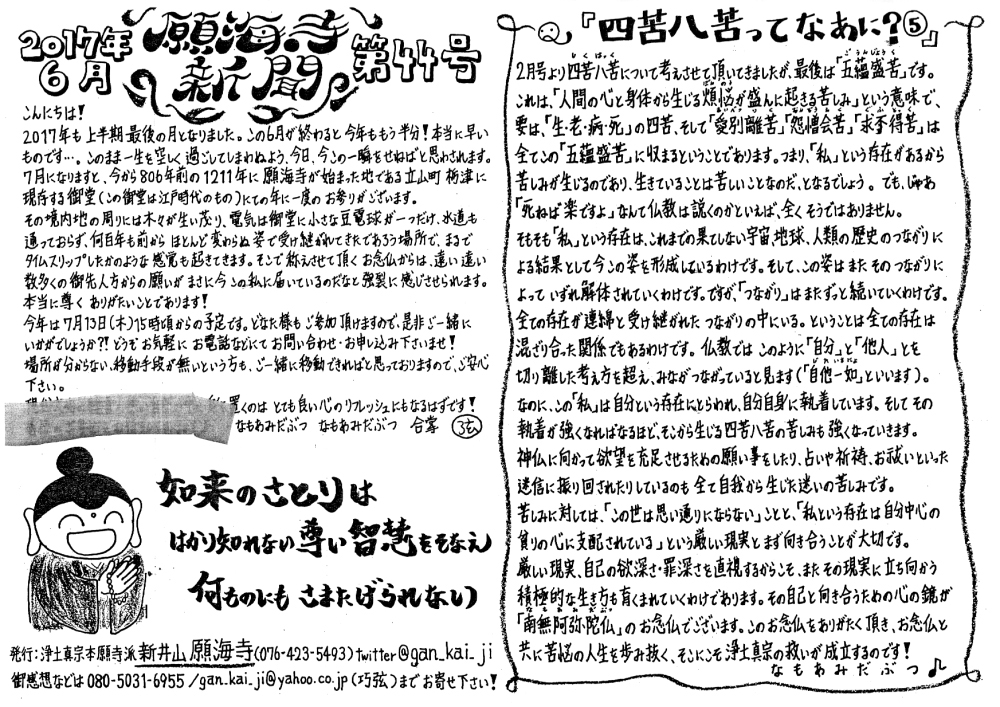 2017年
6月
願海寺
新聞
第44号
こんにちは!
2017年も上半期最後の月となりました。この6月が終わると今年ももう半分!本当に早い
ものです…。このまま一生を空しく過ごしてしまわぬよう、今日、今この一瞬をせねばと思わされます。
7月になりますと、今から806年前の1211年に願海寺が始まった地である立山町栃津に
現存する御堂(この御堂は江戸時代のもの)にての年に一度のお参りがございます。
その境内地の周りには木々が生い茂り、電気は御堂に小さな豆電球が一つだけ、水道も
通っておらず、何百年も前からほとんど変わらぬ姿で受け継がれてきたであろう場所で、まるで
タイムスリップしたかのような感覚も起きてきます。そこで称えさせて頂くお念仏からは、遠い遠い
数多くの御先人方からの願いがまさに今この私に届いているのだなと強裂に感じさせられます。
本当に尊くありがたいことであります!
今年は7月13日(木)15時頃からの予定です。どなた様もご参加頂けますので、是非ご一緒に
いかがでしょうか?!どうぞお気軽にお電話などにてお問い合わせ・お申し込み下さいませ!
場所が分からない、移動手段が無いという方も、ご一緒に移動できればと思っておりますので、ご安心
下さい。
置くのはとても良い心のリフレッシュにもなるはずです!
なもあみだぶつ なもあみだぶつ 合掌 弦
如来のさとりは
はかり知れない尊い智慧をそなえ
何ものにもさまたげられない
発行:浄土真宗本願寺派 新井山 願海寺(076-423-5493)twitter@gan_kai_ji
御感想などは080-5031-6955/gan_kai_ji@yahoo.co.jp(巧弦)までお寄せ下さい!
『四苦八苦ってなあに?⑤』
2月号より四苦八苦について考えさせて頂いてきましたが、最後は「五蘊盛苦」です。
これは、「人間の心と身体から生じる煩悩が盛んに起きる苦しみ」という意味で、
要は、「生・老・病・死」の四苦、そして「愛別離苦」「怨憎会苦」「求不得苦」は
全てこの「五蘊盛苦」に収まるということであります。つまり、「私」という存在があるから
苦しみが生じるのであり、生きていることは苦しいことなのだ、となるでしょう。でも、じゃあ
「死ねば楽ですよ」なんて仏教は説くのかといえば、全くそうではありません。
そもそも「私」という存在は、これまでの果てしない宇宙、地球、人類の歴史のつながりに
よる結果として今この姿を形成しているわけです。そして、この姿はまたそのつながりに
よっていずれ解体されていくわけです。ですが、「つながり」はまたずっと続いていくわけです。
全ての存在が連綿と受け継がれたつながりの中にいる。ということは全ての存在は
混ざり合った関係でもあるわけです。仏教ではこのように「自分」と「他人」とを
切り離した考え方を超え、みながつながっていると見ます(「自他一如」といいます)。
なのに、この「私」は自分という存在にとらわれ、自分自身に執着しています。そしてその
執着が強くなればなるほど、そこから生じる四苦八苦の苦しみも強くなっていきます。
神仏に向かって欲望を充足させるための願い事をしたり、占いや祈祷、お祓いといった
迷信に振り回されたりしているのも全て自我から生じた迷いの苦しみです。
苦しみに対しては、「この世は思い通りにならない」ことと、「私という存在は自分中心の
貪りの心に支配されている」という厳しい現実とまず向き合うことが大切です。
厳しい現実、自己の欲深さ・罪深さを直視するからこそ、またその現実に立ち向かう
積極的な生き方も育くまれていくわけであります。その自己と向き合うための心の鏡が
「南無阿弥陀仏」のお念仏でございます。このお念仏をありがたく頂き、お念仏と
共に苦悩の人生を歩み抜く、そこにこそ浄土真宗の救いが成立するのです!
なもあみだぶつ♪